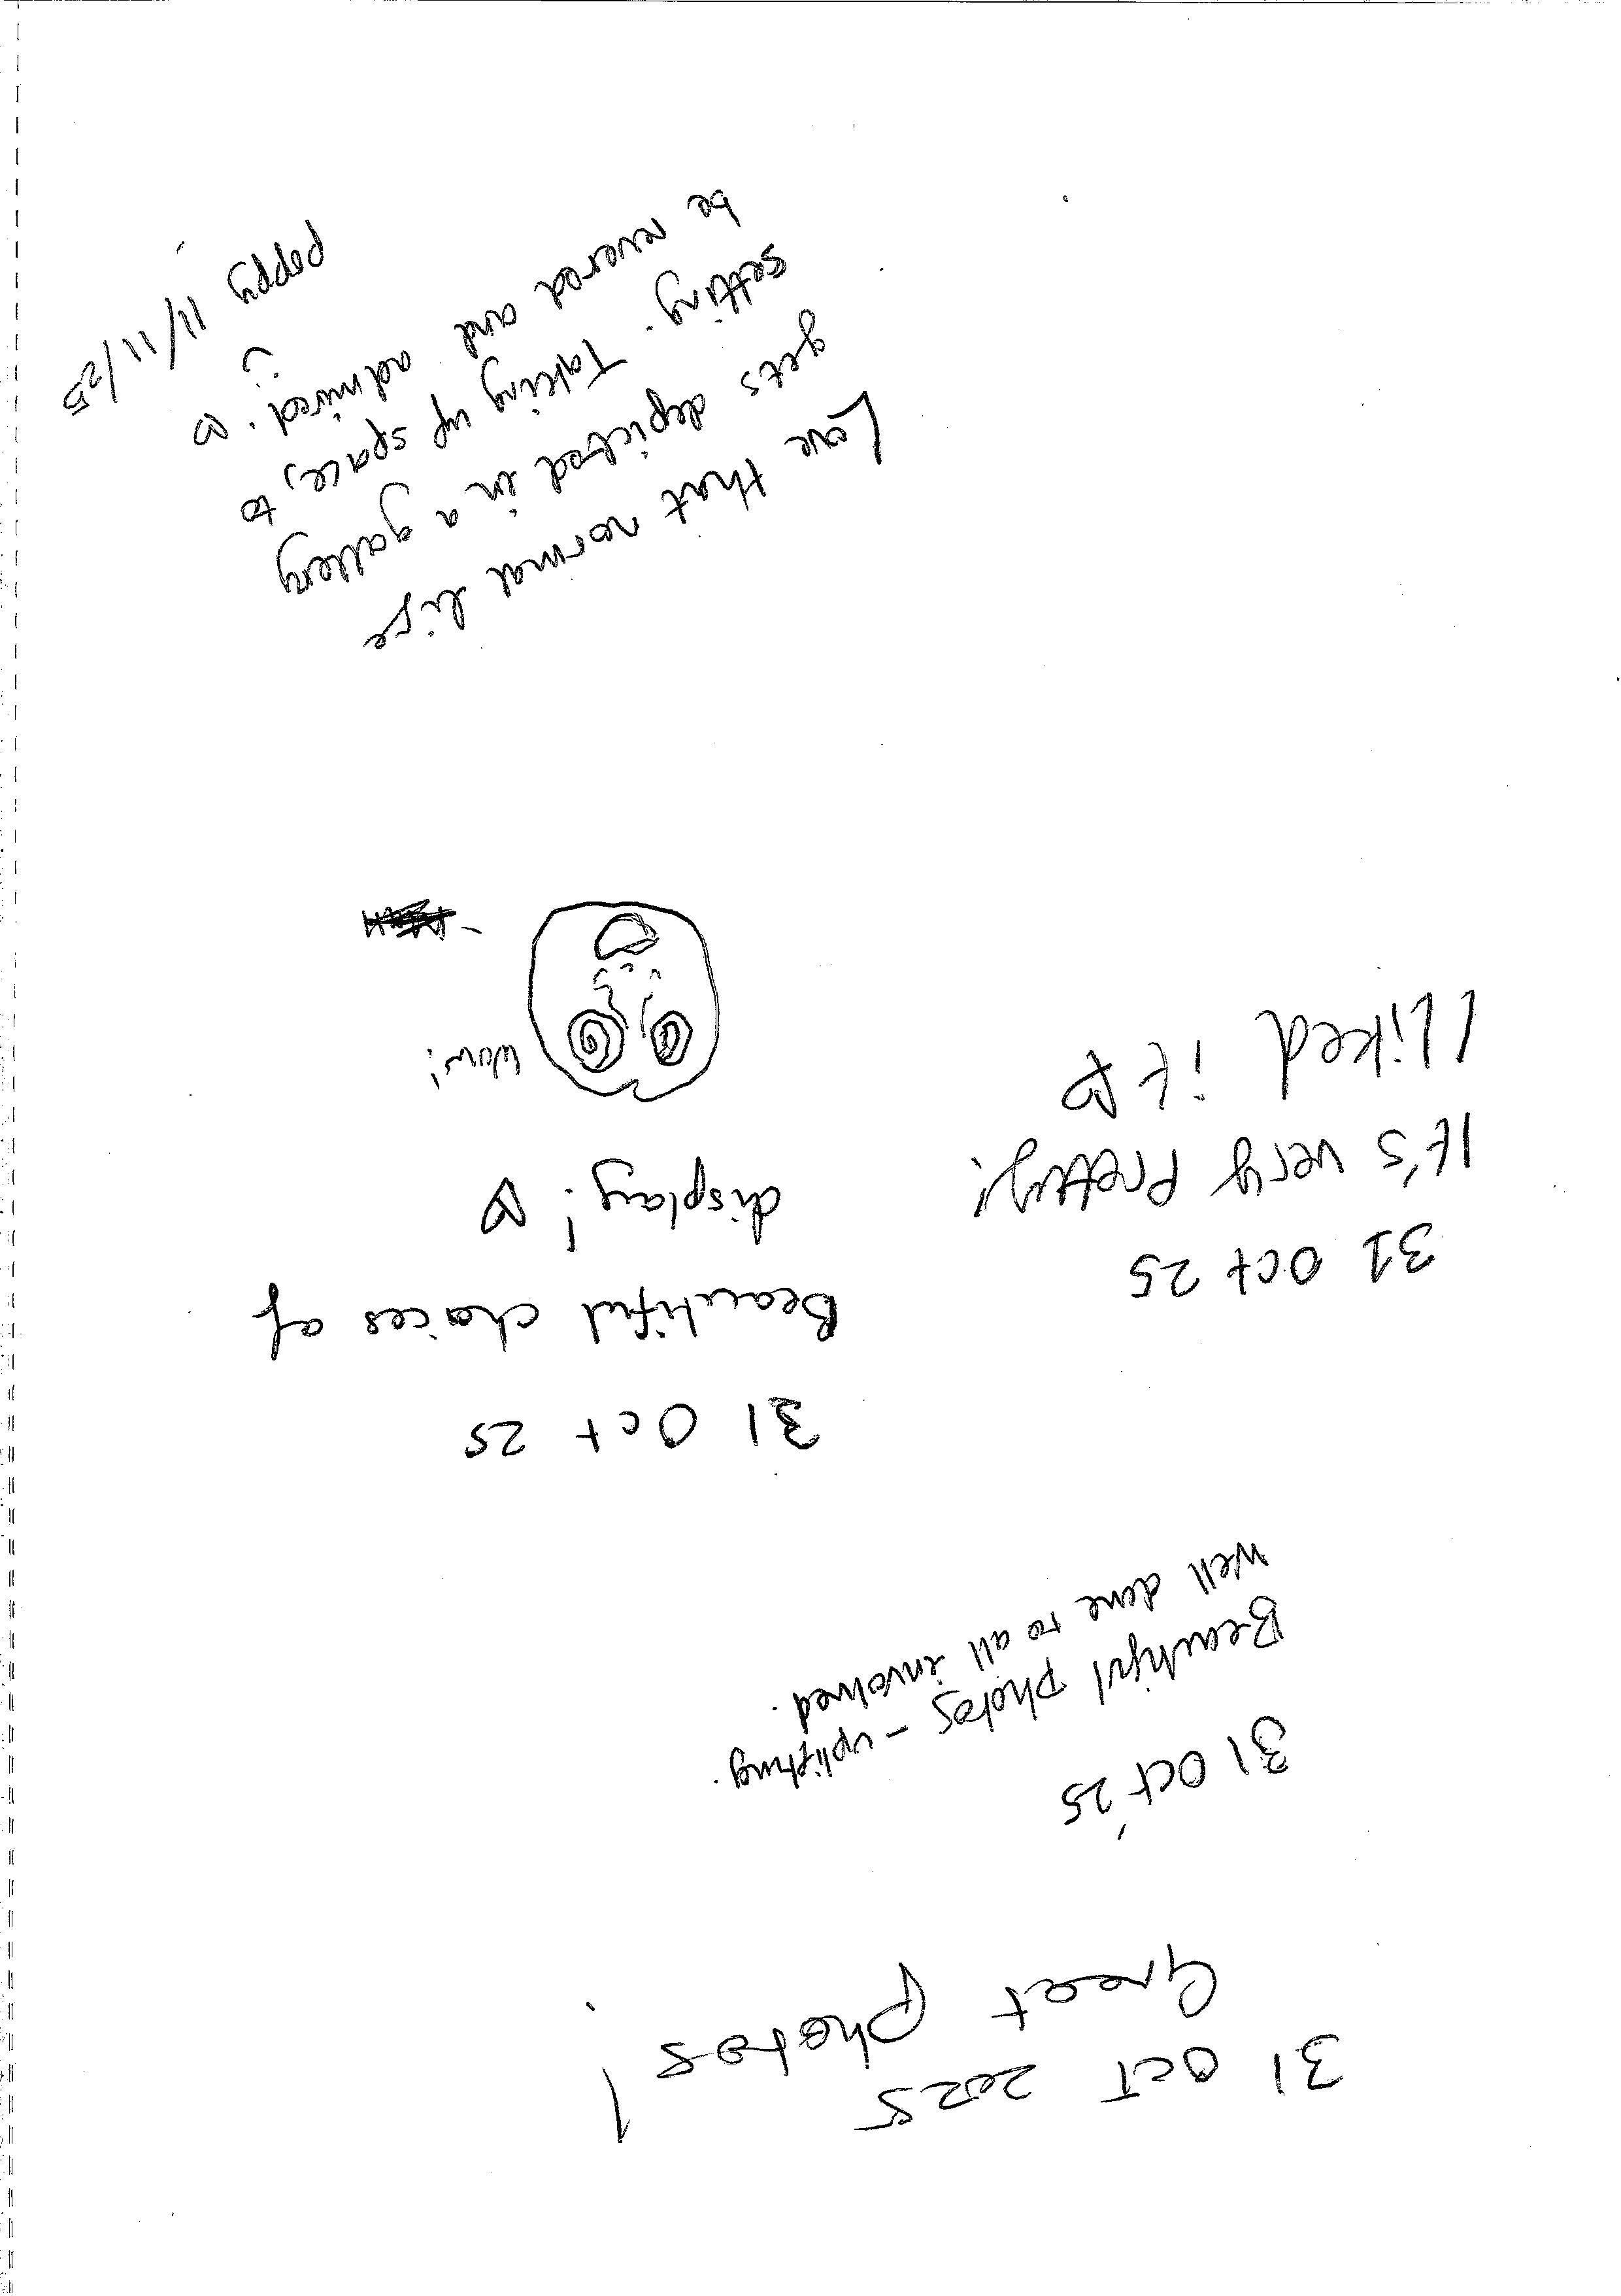 31 OCT 2025
Great photos!
31 Oct '25
Beautiful photos - uplifting.
Well done to all involved.
31 Oct 25
It's very Pretty!
I liked it ♡
31 Oct 25
Beautiful choices of
display! ♡
Wow!
Love that normal life
gets depicted in a gallery
setting. Taking up space, to
be revered and admired. ♡
:)
Poppy 11/11/25